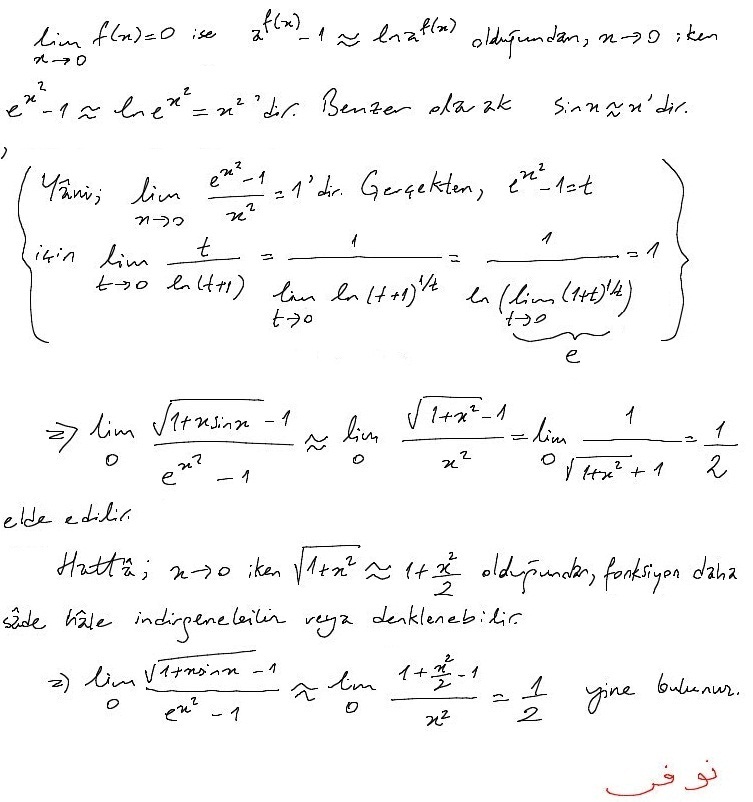 lim_{x→0} f(x)=0 ise a^{f(x)}-1 ≈ ln a^{f(x)} olduğundan, x→0 iken
e^{x²}-1 ≈ ln e^{x²} = x² 'dir. Benzer olarak sinx≈x'dir.
,
{ Yâni; lim_{x→0} (e^{x²}-1)/x² = 1'dir. Gerçekten, e^{x²}-1=t
için lim_{t→0} t/ln(t+1) = 1/(lim_{t→0} ln(t+1)^{1/t}) = 1/(ln(lim_{t→0} (1+t)^{1/t})) = 1 }
e
⇒ lim_{0} (√(1+xsinx) -1)/(e^{x²} -1) ≈ lim_{0} (√(1+x²)-1)/x² = lim_{0} 1/(√(1+x²) +1) = 1/2
elde edilir.
Hattâ; x→0 iken √(1+x²) ≈ 1+x²/2 olduğundan, fonksiyon daha
sâde hâle indirgenebilir veya denklenebilir.
⇒ lim_{0} (√(1+xsinx) -1)/(e^{x²} -1) ≈ lim_{0} (1+x²/2 -1)/x² = 1/2 yine bulunur.